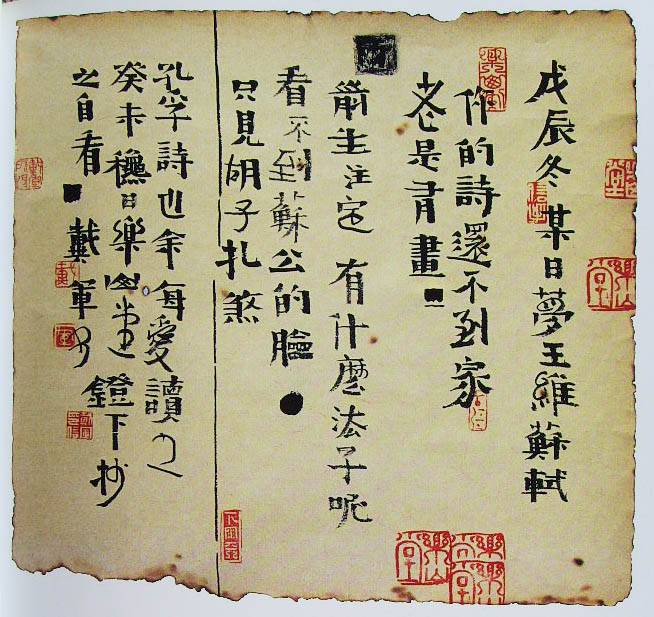 戊辰冬某日夢王維蘇軾
作的詩還不到家
老是有畫
前生注定 有什麼法子呢
看不到蘇公的臉
只見胡子扎煞
孔孚詩也余每愛讀之
癸未穐日樂山堂鐙下抄
之自看 戴軍
樂山堂
樂山堂